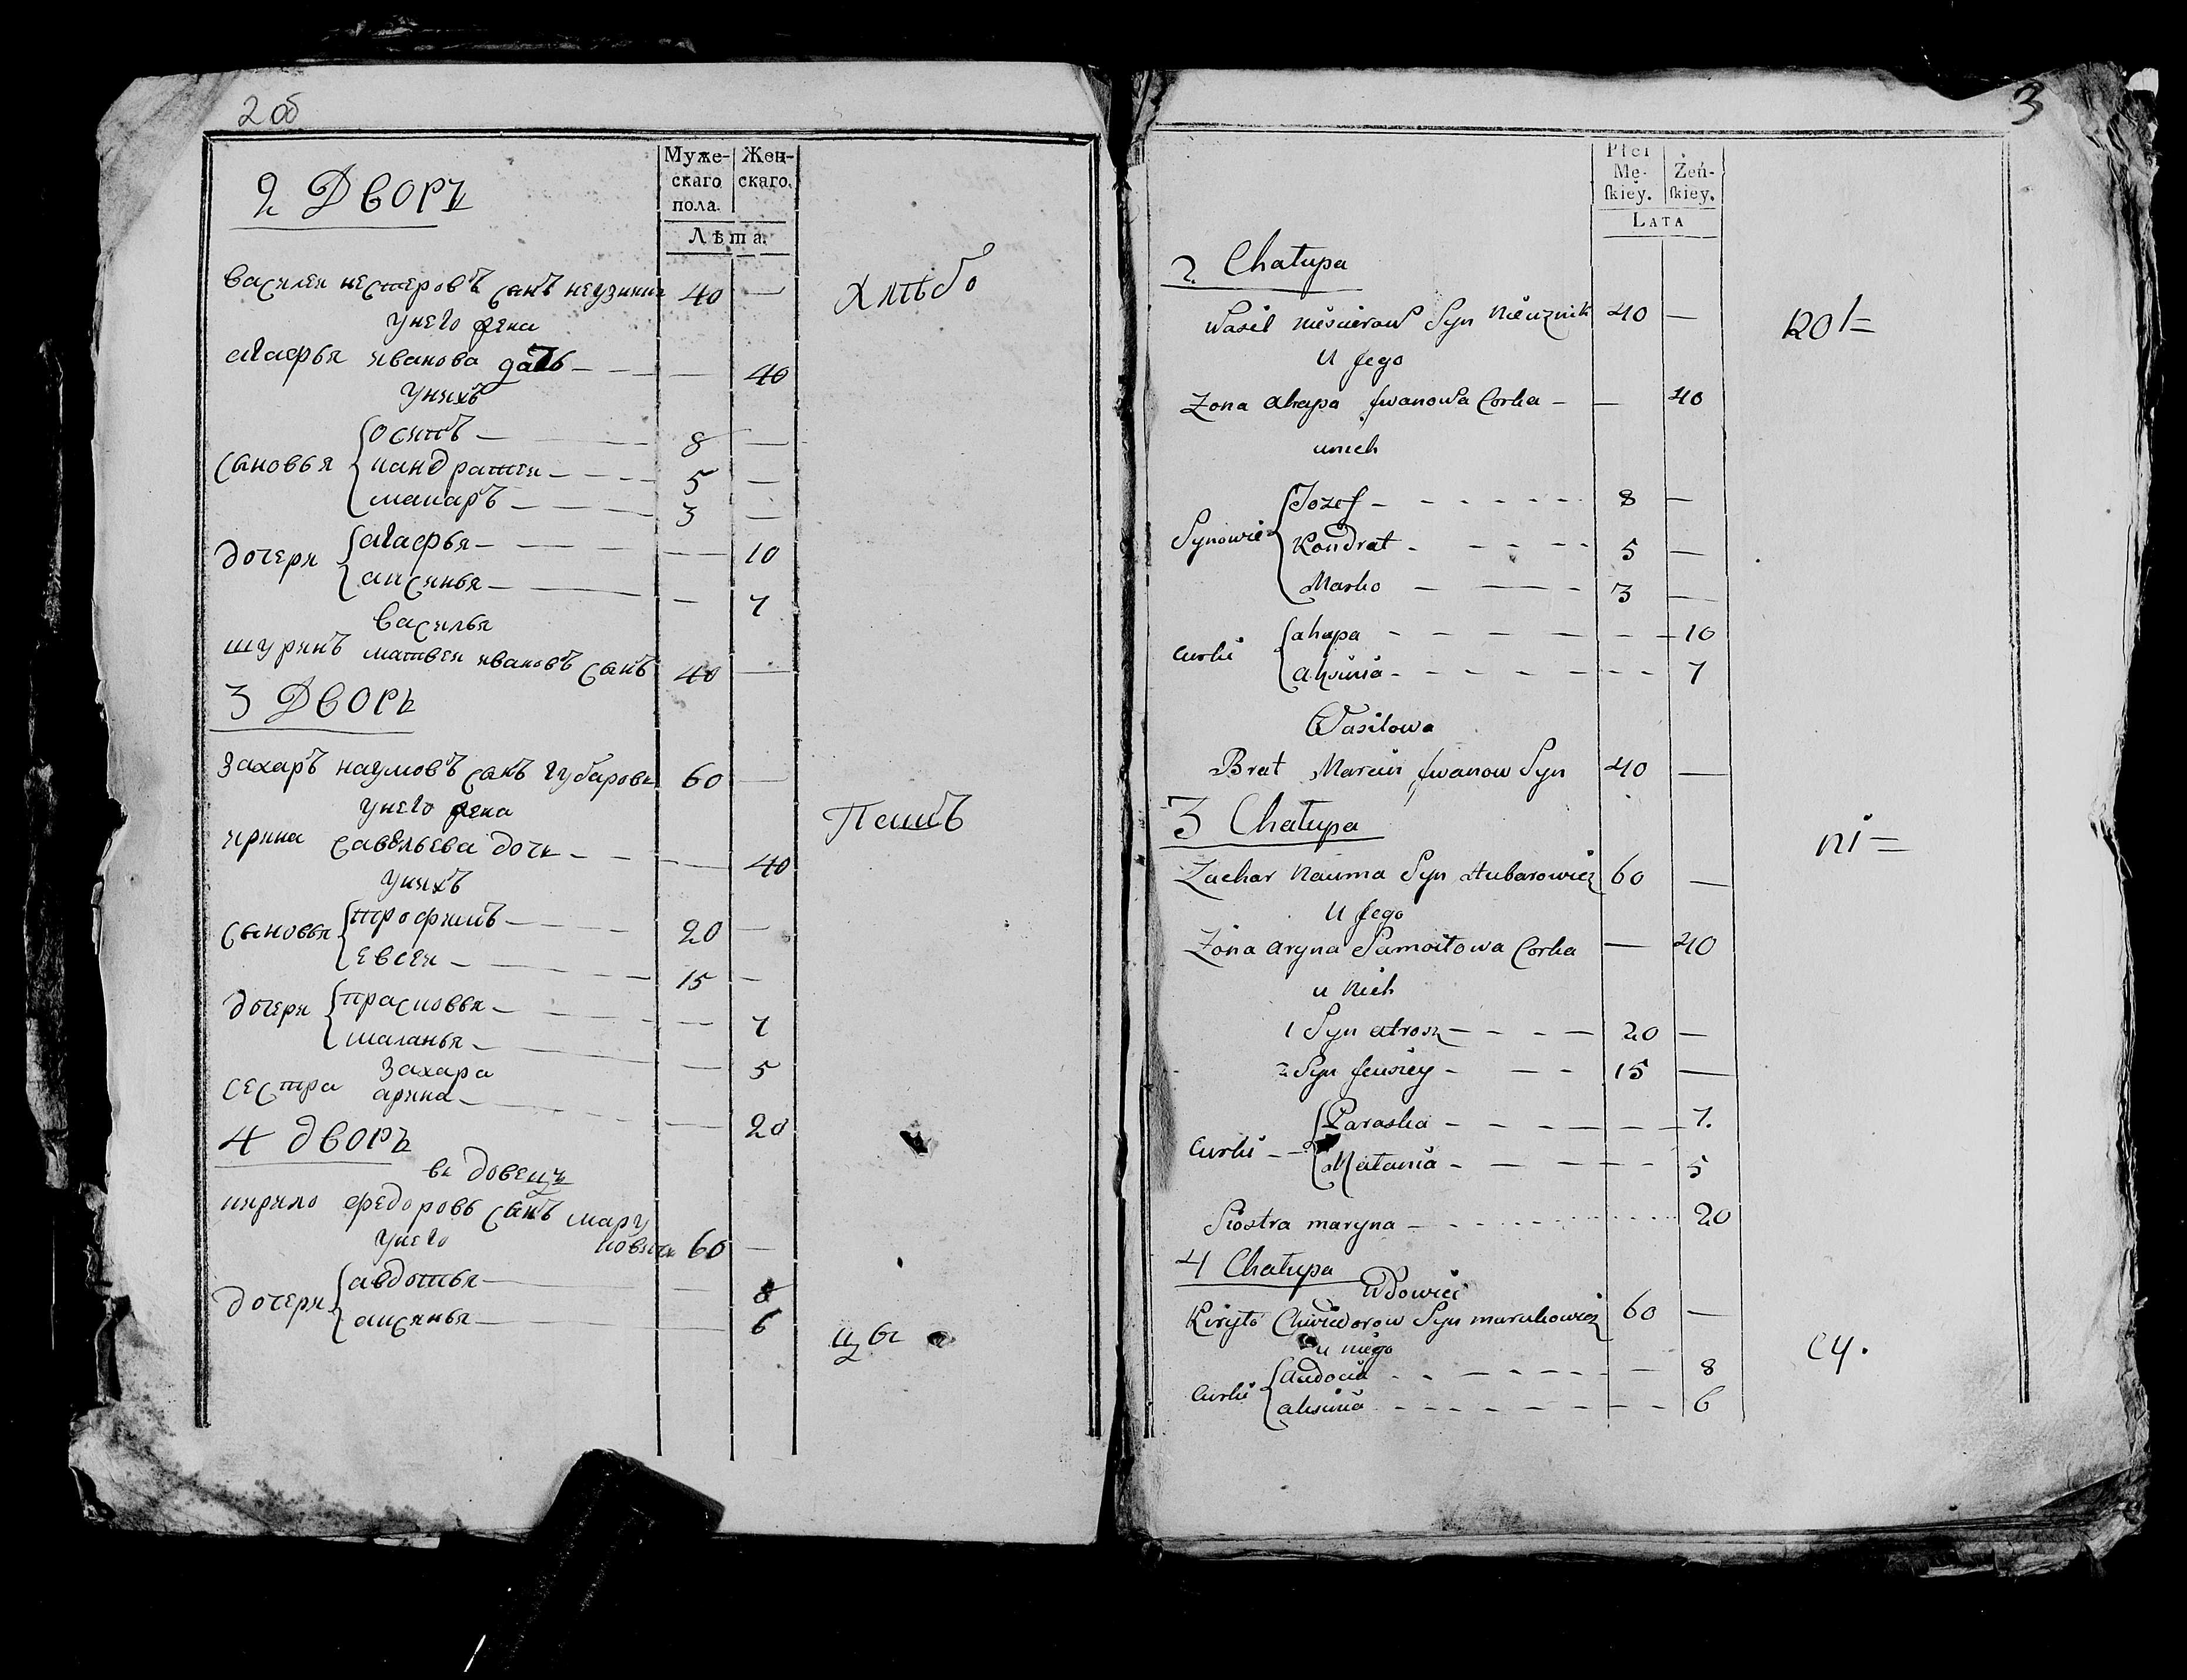 2 об
Муже-
скаго
пола.
Жен-
скаго.
Лѣта.
2 Дворъ
василеи нестеровъ сынъ неузник 40 —
хлѣбо
унего жена
агафья иванова дочь — — — — 40
унихъ
сыновья
осипъ — — — 8 —
кандратеи — — — 5 —
макаръ — — — 3 —
дочери
агафья — — — — 10
аксинья — — — — 7
василья
шуринъ матвеи ивановъ сынъ 40 —
3 Дворъ
захаръ наумовъ сынъ губарови 60 —
унего жена
Пашъ
ирина савельева дочь — — — 40
унихъ
сыновья
трофимъ — — — 20 —
евсеи — — — 15 —
дочери
прасковья — — — — 7
маланья — — — — 5
захара
сестра арина — — — — 20
4 дворъ
вдовецъ
кирило федоровъ сынъ мару
унего
ковичъ 60 —
дочери
авдотья — — 8
аксинья — — 6
цы
3
Płci
Mę-
skiey.
Żeń-
skiey.
LATA
2 Chałupa
Wasil niescierow Syn Nieuznik 40 —
kol=
U Jego
Zona ahapa Jwanowa Corka — — 40
unich
Synowie
Jozef — — — 8 —
Kondrat — — — 5 —
Marko — — — 3 —
Curki
ahapa — — — — 10
aksinia — — — — 7
Wasilowa
Brat Marcin Jwanow Syn 40 —
3 Chałupa
ni=
Zachar Nauma Syn Hubarowicz 60 —
U Jego
Zona aryna Samoiłowa Corka — 40
u Nich
1 Syn atrosz — — — 20 —
2 Syn Jeusiey — — — 15 —
Curki
Paraska — — — — 7.
Małania — — — — 5
Siostra maryna — — — 20
4 Chałupa
Wdowiec
Kiryło Chwiedorow Syn marukowicz 60 —
u niego
Curki
audocia — — — — 8
aksinia — — — — 6
cy.